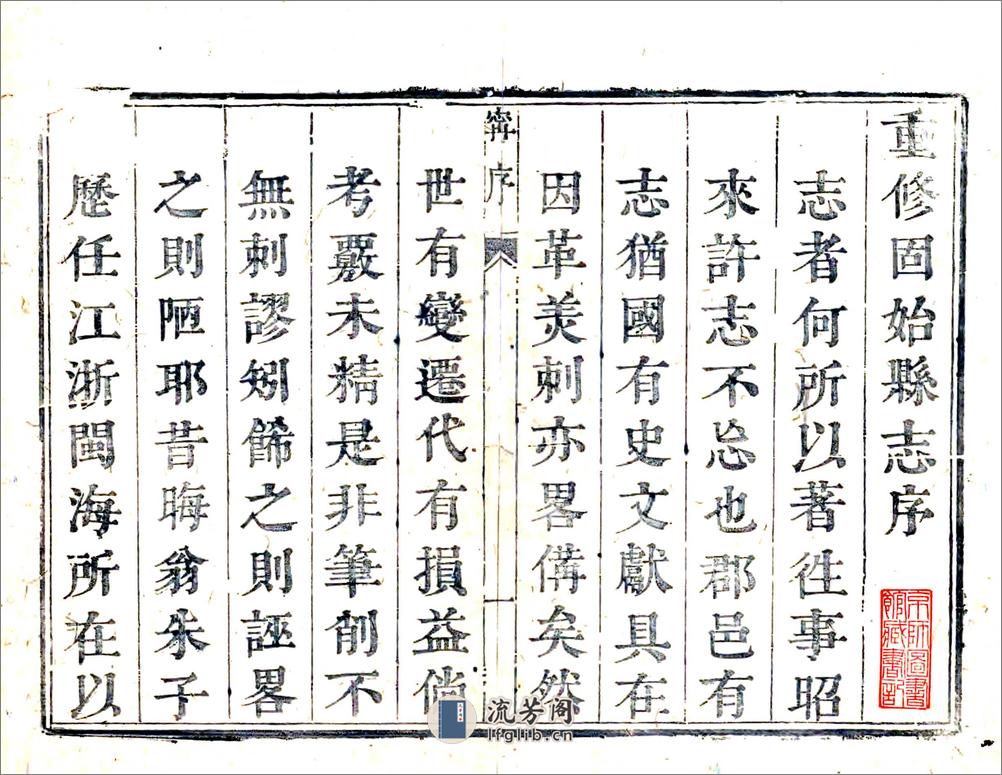 重修固始縣志序
志者何所以著徃事昭
來許志不忘也郡邑有
志猶國有史文獻具在
因革美刺亦畧備矣然
寗序
一
世有變遷代有損益倘
考覈未精是非筆削不
無刺謬矧餙之則誣畧
之則陋耶昔晦翁朱子
歷任江浙閩海所在以
京師圖書
館藏書記
流芳阁
lfglib.cn